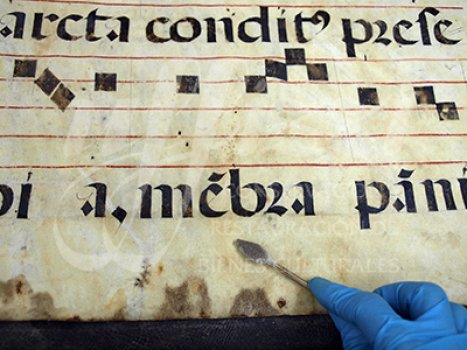 arcta condit⁹ prese
pi a, mẽbra pãni
RESTAURACIÓN DE
BIENES CULTURALES